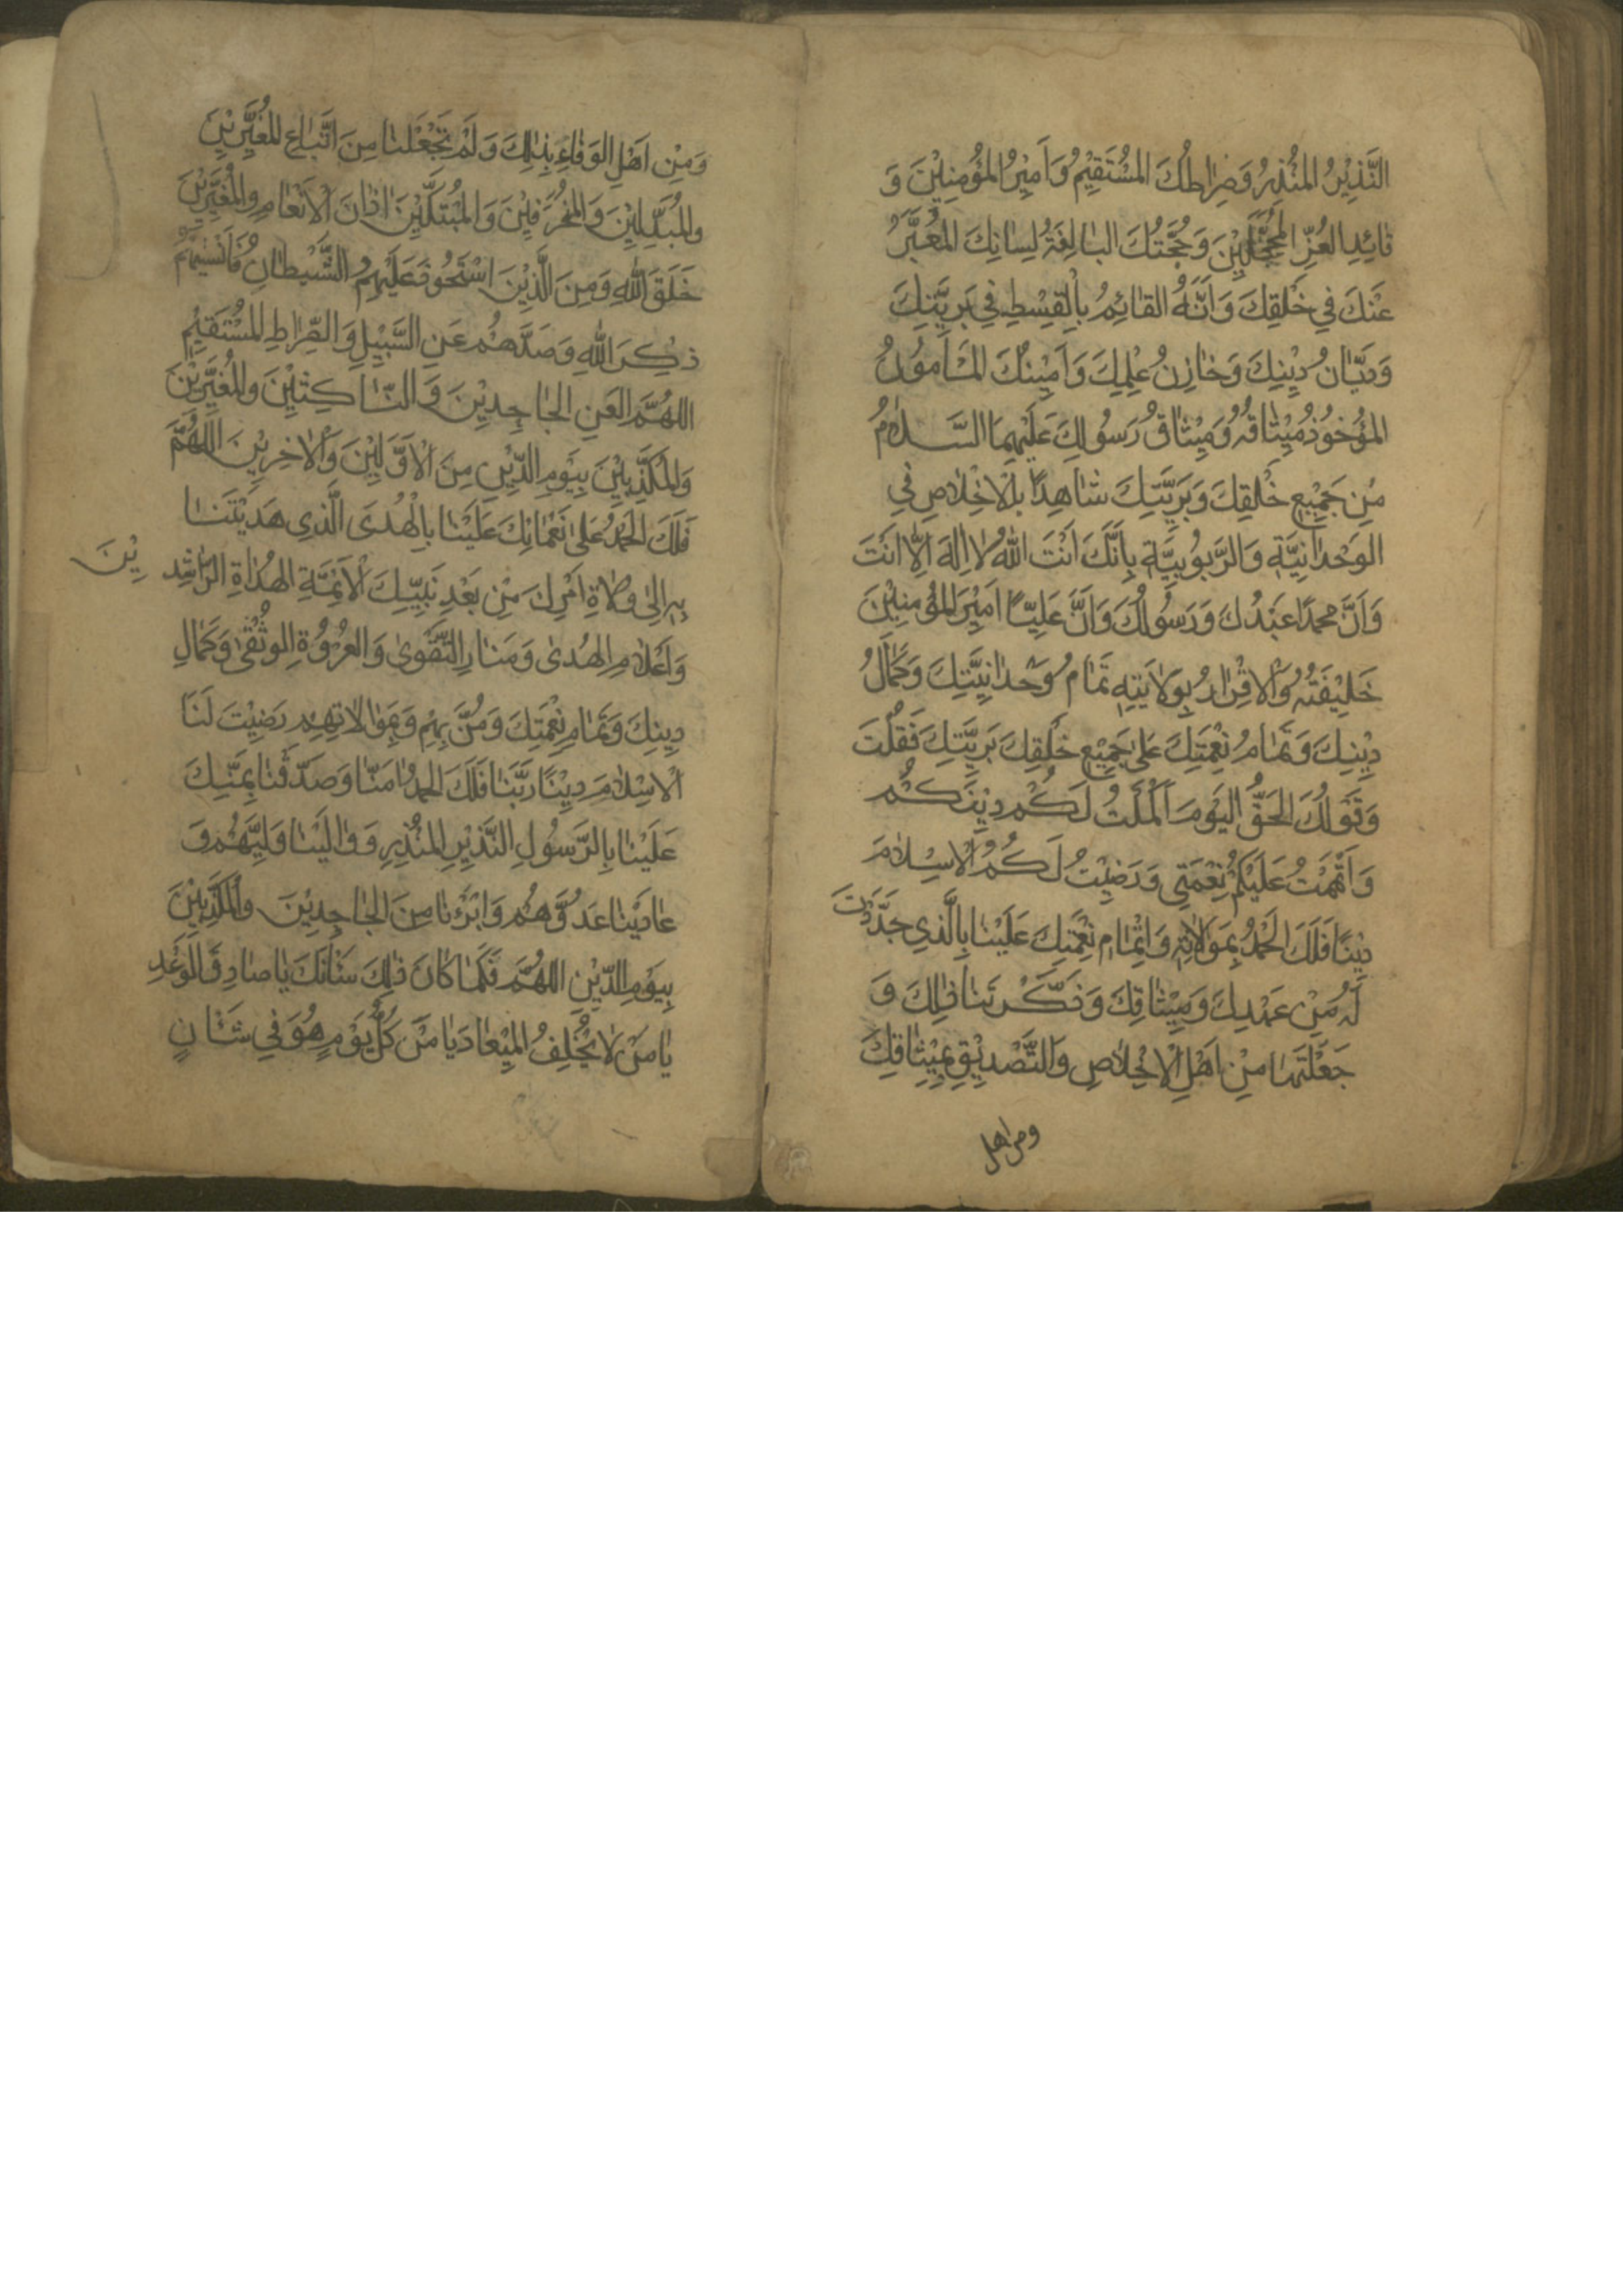 النَّذِيْرُ المُنْذِرُ وَصِرَاطُكَ المُسْتَقِيْمُ وَاَمِيْرُ المُؤْمِنِيْنَ وَ
قَائِدِ الغُرِّ المُحَجَّلِيْنَ وَحُجَّتُكَ البَالِغَةُ لِسَانِكَ المُعَبَّرُ
عَنْكَ فِي خَلْقِكَ وَاَنَّهُ القَائِمُ بِالْقِسْطِ فِي بَرِيَّتِكَ
وَدَيَّانُ دِيْنِكَ وَخَازِنُ عِلْمِكَ وَاَمِيْنُكَ المَأمُونُ
المَؤْخُوْذُ مِيْثَاقُهُ وَمِيْثَاقُ رَسُولِكَ عَلَيْهِمَا السَّلَامُ
مِنْ جَمِيْعِ خَلْقِكَ وَبَرِيَّتِكَ شَاهِدًا بِالْاِخْلَاصِ فِي
الوَحْدَانِيَّةِ وَالرَّبُوبِيَّةِ بِاَنَّكَ اَنْتَ اللهُ لَا اِلٰهَ اِلَّا اَنْتَ
وَاَنَّ مُحَمَّدًا عَبْدُكَ وَرَسُولُكَ وَاَنَّ عَلِيًّا اَمِيْرَ المُؤْمِنِيْنَ
خَلِيْفَتُهُ وَالْاِقْرَارُ بِوَلَايَتِهِ تَمَامُ وَحْدَانِيَّتِكَ وَكَمَالُ
دِيْنِكَ وَتَمَامُ نِعْمَتِكَ عَلىٰ جَمِيْعِ خَلْقِكَ بَرِيَّتِكَ فَقُلْتَ
وَقَوْلُكَ الحَقُّ اليَوْمَ اَكْمَلْتُ لَكُمْ دِيْنَكُمْ
وَاَتْمَمْتُ عَلَيْكُمْ نِعْمَتِي وَرَضِيْتُ لَكُمُ الْاِسْلَامَ
دِيْنًا فَلَكَ الحَمْدُ بِمَوَالَاتِهِ وَاِتْمَامِ نِعْمَتِكَ عَلَيْنَا بِالَّذِي جَدَّدْتَ
لَهُ مِنْ عَهْدِكَ وَمِيْثَاقِكَ وَذَكَّرْتَنَا ذٰلِكَ وَ
جَعَلْتَنَا مِنْ اَهْلِ الْاِخْلَاصِ وَالتَّصْدِيْقِ بِمِيْثَاقِكَ
ومن اهل
وَمِنْ اَهْلِ الوَفَاءِ بِذٰلِكَ وَلَمْ تَجْعَلْنَا مِنَ اتِّبَاعِ المُغَيِّرِيْنَ
وَالمُبَدِّلِيْنَ وَالمُحَرِّفِيْنَ وَالمُبَتِّكِيْنَ اٰذَانَ الْاَنْعَامِ وَالمُغَيِّرِيْنَ
خَلْقَ اللهِ وَمِنَ الَّذِيْنَ اسْتَحْوَذَ عَلَيْهِمُ الشَّيْطَانُ فَاَنْسٰيهُمْ
ذِكْرَ اللهِ وَصَدَّهُمْ عَنِ السَّبِيْلِ وَالصِّرَاطِ المُسْتَقِيْمِ
اللهُمَّ العَنِ الجَاحِدِيْنَ وَالنَّاكِثِيْنَ وَالمُغَيِّرِيْنَ
وَالمُكَذِّبِيْنَ بِيَوْمِ الدِّيْنِ مِنَ الْاَوَّلِيْنَ وَالْاٰخِرِيْنَ اللهُمَّ
فَلَكَ الحَمْدُ عَلىٰ نَعْمَائِكَ عَلَيْنَا بِالْهُدَى الَّذِي هَدَيْتَنَا
بِهِ اِلىٰ وُلَاةِ اَمْرِكَ مِنْ بَعْدِ نَبِيِّكَ الْاَئِمَّةِ الهُدَاةِ الرَّاشِدِيْنَ
وَاَعْلَامِ الهُدىٰ وَمَنَارِ التَّقْوىٰ وَالعُرْوَةِ الوُثْقىٰ وَكَمَالِ
دِيْنِكَ وَتَمَامِ نِعْمَتِكَ وَمَنْ بِهِمْ وَبِمُوَالَاتِهِمْ رَضِيْتَ لَنَا
الْاِسْلَامَ دِيْنًا رَبَّنَا فَلَكَ الحَمْدُ اٰمَنَّا وَصَدَّقْنَا بِمَنِّكَ
عَلَيْنَا بِالرَّسُولِ النَّذِيْرِ المُنْذِرِ وَوَالَيْنَا وَلِيَّهُمْ وَ
عَادَيْنَا عَدُوَّهُمْ وَابْرَئْنَا مِنَ الجَاحِدِيْنَ وَالمُكَذِّبِيْنَ
بِيَوْمِ الدِّيْنِ اللهُمَّ فَكَمَا كَانَ ذٰلِكَ شَأنَكَ يَا صَادِقَ الوَعْدِ
يَا مَنْ لَا يُخْلِفُ المِيْعَادَ يَا مَنْ كُلَّ يَوْمٍ هُوَ فِي شَأنٍ